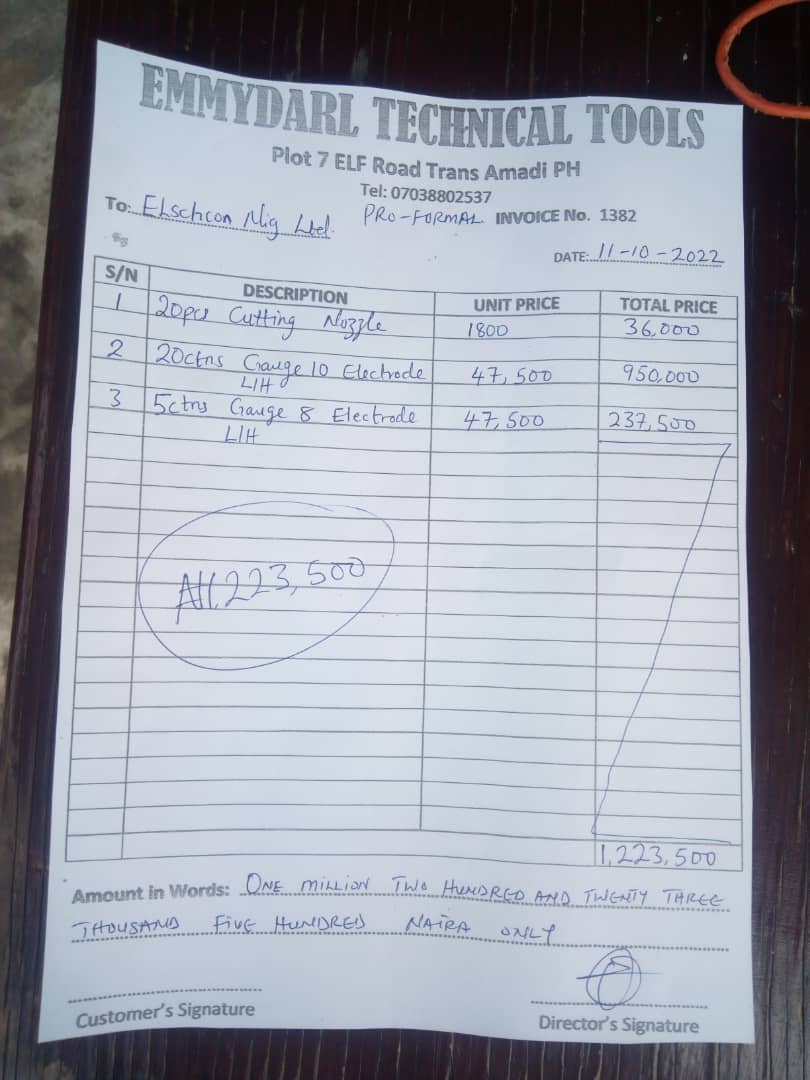 EMMYDARL TECHNICAL TOOLS
Plot 7 ELF Road Trans Amadi PH
Tel: 07038802537
To: Elschcon Nig Ltd.
PRO-FORMAL INVOICE No. 1382
DATE: 11-10-2022
S/N DESCRIPTION UNIT PRICE TOTAL PRICE
1 20pcs Cutting Nozzle 1800 36,000
2 20ctns Gauge 10 Electrode 47,500 950,000
L/H
3 5ctns Gauge 8 Electrode 47,500 237,500
L/H
₦1,223,500
1,223,500
Amount in Words: ONE MILLION TWO HUNDRED AND TWENTY THREE
THOUSAND FIVE HUNDRED NAIRA ONLY
Customer's Signature
Director's Signature